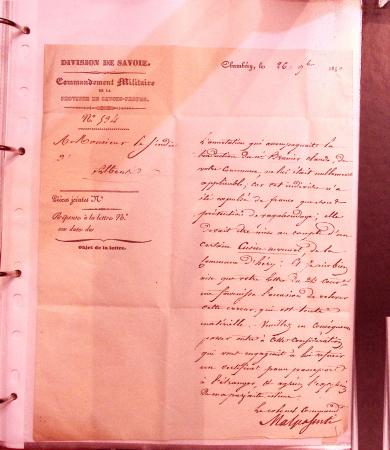 DIVISION DE SAVOIE.
Commandement Militaire
DE LA
PROVINCE DE SAVOIE-PROPRE.
N.º 594
A Monsieur le Sindic
d'
Pièces jointes N.º
Réponse à la lettre N.º
en date du
Objet de la lettre.
Chambéry, le 26 9bre 18
L'annotation qui accompagnait la
traduction de Brunier claude, de
votre Commune, ne lui était nullement
applicable, cet individu n'a
été expulsé de france que sous
prévention de vagabondage; elle
devait être mise au compte d'un
certain de la
Commune d'héry; Je suis bien
aise que votre lettre du 24 Cour.t
me fournisse l'occasion de relever
cette erreur, qui est toute
matérielle. Veuillez en conséquence
passer outre à cette considération
qui vous engageait à lui refuser
un certificat pour passeport
à l'étranger, & agréez
de ma parfaite estime.
Le colonel Command.t